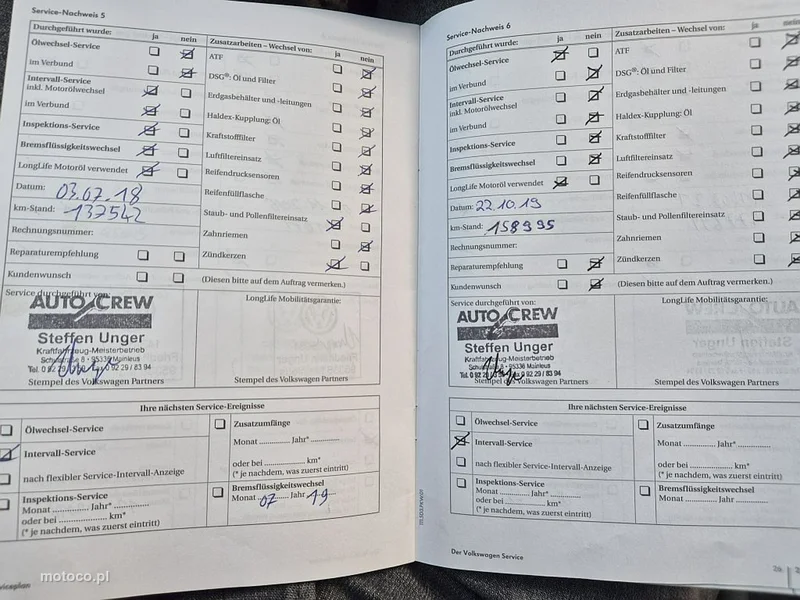 Service-Nachweis 5
Durchgeführt wurde: ja nein
Ölwechsel-Service
im Verbund
Intervall-Service
inkl. Motorölwechsel
im Verbund
Inspektions-Service
Bremsflüssigkeitswechsel
LongLife Motoröl verwendet
Datum: 03.07.18
km-Stand: 137542
Rechnungsnummer:
Reparaturempfehlung
Kundenwunsch
Zusatzarbeiten – Wechsel von: ja nein
ATF
DSG®: Öl und Filter
Erdgasbehälter und -leitungen
Haldex-Kupplung: Öl
Kraftstofffilter
Luftfiltereinsatz
Reifendrucksensoren
Reifenfüllflasche
Staub- und Pollenfiltereinsatz
Zahnriemen
Zündkerzen
(Diesen bitte auf dem Auftrag vermerken.)
Service durchgeführt von:
AUTO CREW
Steffen Unger
Kraftfahrzeug-Meisterbetrieb
95336 Mainleus
Stempel des Volkswagen Partners
LongLife Mobilitätsgarantie:
Stempel des Volkswagen Partners
Ihre nächsten Service-Ereignisse
Ölwechsel-Service
Intervall-Service
nach flexibler Service-Intervall-Anzeige
Inspektions-Service
Monat ............ Jahr* ............
oder bei .................. km*
(* je nachdem, was zuerst eintritt)
Zusatzumfänge
Monat ............ Jahr* ............
oder bei .................. km*
(* je nachdem, was zuerst eintritt)
Bremsflüssigkeitswechsel
Monat 07 Jahr 19
motoco.pl
Service-Nachweis 6
Durchgeführt wurde: ja nein
Ölwechsel-Service
im Verbund
Intervall-Service
inkl. Motorölwechsel
im Verbund
Inspektions-Service
Bremsflüssigkeitswechsel
LongLife Motoröl verwendet
Datum: 22.10.19
km-Stand: 158995
Rechnungsnummer:
Reparaturempfehlung
Kundenwunsch
Zusatzarbeiten – Wechsel von: ja nein
ATF
DSG®: Öl und Filter
Erdgasbehälter und -leitungen
Haldex-Kupplung: Öl
Kraftstofffilter
Luftfiltereinsatz
Reifendrucksensoren
Reifenfüllflasche
Staub- und Pollenfiltereinsatz
Zahnriemen
Zündkerzen
(Diesen bitte auf dem Auftrag vermerken.)
Service durchgeführt von:
AUTO CREW
Steffen Unger
Kraftfahrzeug-Meisterbetrieb
Schulstraße 8 · 95336 Mainleus
Tel. 0 92 29 / 83 94
Stempel des Volkswagen Partners
LongLife Mobilitätsgarantie:
Stempel des Volkswagen Partners
Ihre nächsten Service-Ereignisse
Ölwechsel-Service
Intervall-Service
nach flexibler Service-Intervall-Anzeige
Inspektions-Service
Monat ............ Jahr* ............
oder bei .................. km*
(* je nachdem, was zuerst eintritt)
Zusatzumfänge
Monat ............ Jahr* ............
oder bei .................. km*
(* je nachdem, was zuerst eintritt)
Bremsflüssigkeitswechsel
Monat ............ Jahr* ............
Der Volkswagen Service